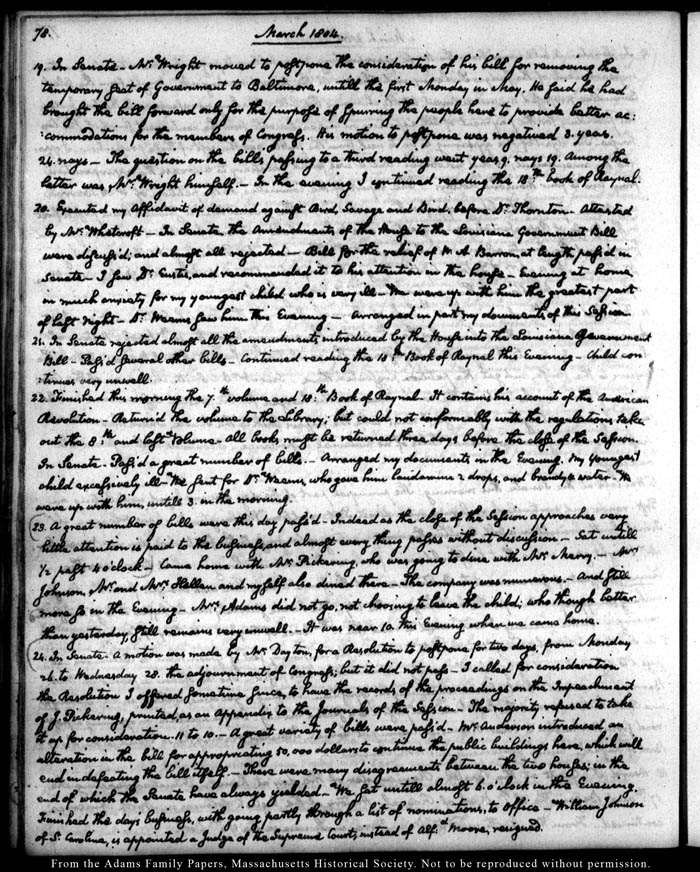 78.
March 1804.
19. In Senate - Mr. Wright moved to postpone the consideration of his bill for removing the
temporary seat of Government to Baltimore, untill the first Monday in May. He said he had
brought the bill forward only for the purpose of spurring the people here to provide better ac:
:commodations for the members of Congress. His motion to postpone was negatived 3. yeas.
24. nays - The question on the bills passing to a third reading went yeas 9, nays 19. Among the
latter was, Mr. Wright himself. - In the evening I continued reading the 18th book of Raynal.
20. Executed my Affidavit of demand against Bird, Savage and Bird, before Dr. Thornton - Attested
by Mr. Whetcroft - In Senate the Amendments of the House to the Louisiana Government Bill
were discuss'd; and almost all rejected - Bill for the relief of M. A. Barron, at length, pass'd in
Senate - I saw Dr. Eustis, and recommended it to his attention in the house - Evening at home,
in much anxiety for my youngest child who is very ill - We were up with him the greatest part
of last night - Dr. Weems saw him this Evening - Arranged in part my documents of this Session.
21. In Senate rejected almost all the amendments introduced by the House into the Louisiana Government
Bill - Pass'd several other bills - Continued reading the 18th Book of Raynal this Evening - Child con
:tinues very unwell.
22. Finished this morning the 7.th volume and 18.th Book of Raynal - It contains his account of the American
Revolution - Return'd the volume to the Library; but could not conformably with the regulations take
out the 8.th and last volume - All books must be returned three days before the close of the Session.
In Senate. Pass'd a great number of bills. - Arranged my documents in the Evening. My youngest
child excessively ill - We sent for Dr. Weems, who gave him laudanum 2 drops, and brandy & water. We
were up with him, untill 3 in the morning.
23. A great number of bills were this day pass'd - Indeed as the close of the Session approaches very
little attention is paid to the business, and almost every thing passes without discussion - Sat untill
1/2 past 4 o'clock - Came home with Mr. Pickering, who was going to dine with Mr. Merry. - Mr.
Johnson, Mr. and Mrs. Hellen and myself also dined there - The company was numerous - And still
more so in the Evening - Mrs. Adams did not go, not choosing to leave the child; who though better
than yesterday, still remains very unwell. - It was near 10. this Evening when we came home.
24. In Senate. A motion was made by Mr. Dayton, for a Resolution to postpone for two days, from Monday
26. to Wednesday 28. the adjournment of Congress; but it did not pass - I called for consideration
the Resolution I offered sometime since, to have the records of the proceedings on the Impeachment
of J. Pickering, printed, as an Appendix to the Journals of the Session - The majority refused to take
it up for consideration. 11 to 10. - A great variety of bills were pass'd - Mr. Anderson introduced an
alteration in the bill for appropriating 50,000 dollars to continue the public buildings here, which will
end in defeating the bill itself. - There were many disagreements between the two houses; in the
end of which the Senate have always yielded. - We sat untill almost 6. o'clock in the Evening.
Finished the days business, with going partly through a list of nominations, to office - William Johnson
of S. Carolina, is appointed a Judge of the Supreme Court, instead of Alf. Moore, resigned.
From the Adams Family Papers, Massachusetts Historical Society. Not to be reproduced without permission.